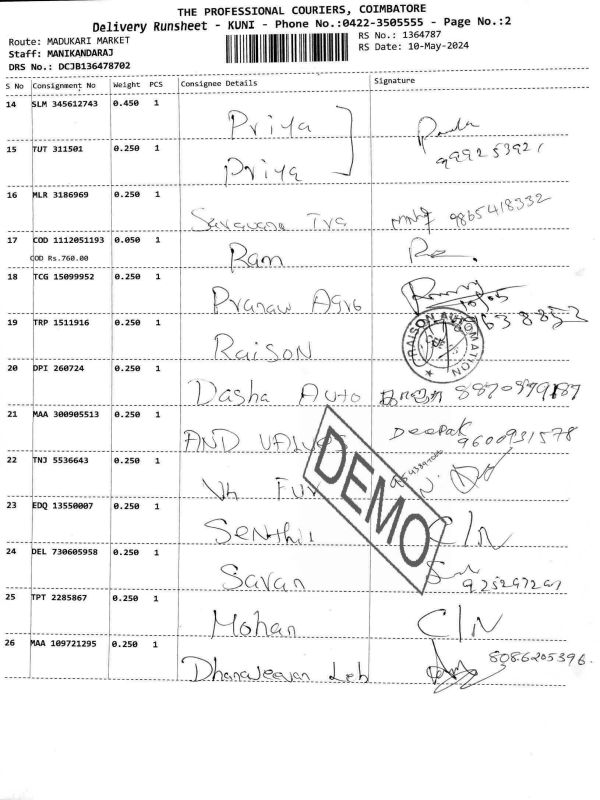 THE PROFESSIONAL COURIERS, COIMBATORE
Delivery Runsheet - KUNI - Phone No.:0422-3505555 - Page No.:2
Route: MADUKARI MARKET RS No.: 1364787
Staff: MANIKANDARAJ RS Date: 10-May-2024
DRS No.: DCJB136478702
S No Consignment No Weight PCS Consignee Details Signature
14 SLM 345612743 0.450 1 Priya
15 TUT 311501 0.250 1 Priya
16 MLR 3186969 0.250 1 9865418332
17 COD 1112051193 0.050 1 Ram
COD Rs.760.00
18 TCG 15099952 0.250 1 Pranaw Agro
19 TRP 1511916 0.250 1 Raison RAISON AUTOMATION
20 DPI 260724 0.250 1 Dasha Auto
21 MAA 300905513 0.250 1 AND VALVES Deepak 9600931578
22 TNJ 5536643 0.250 1
DEMO
23 EDQ 13550007 0.250 1 Senthil C/N
24 DEL 730605958 0.250 1 Savan
25 TPT 2285867 0.250 1 Mohan C/N
26 MAA 109721295 0.250 1 Dhanajeevan Leb 8086205396